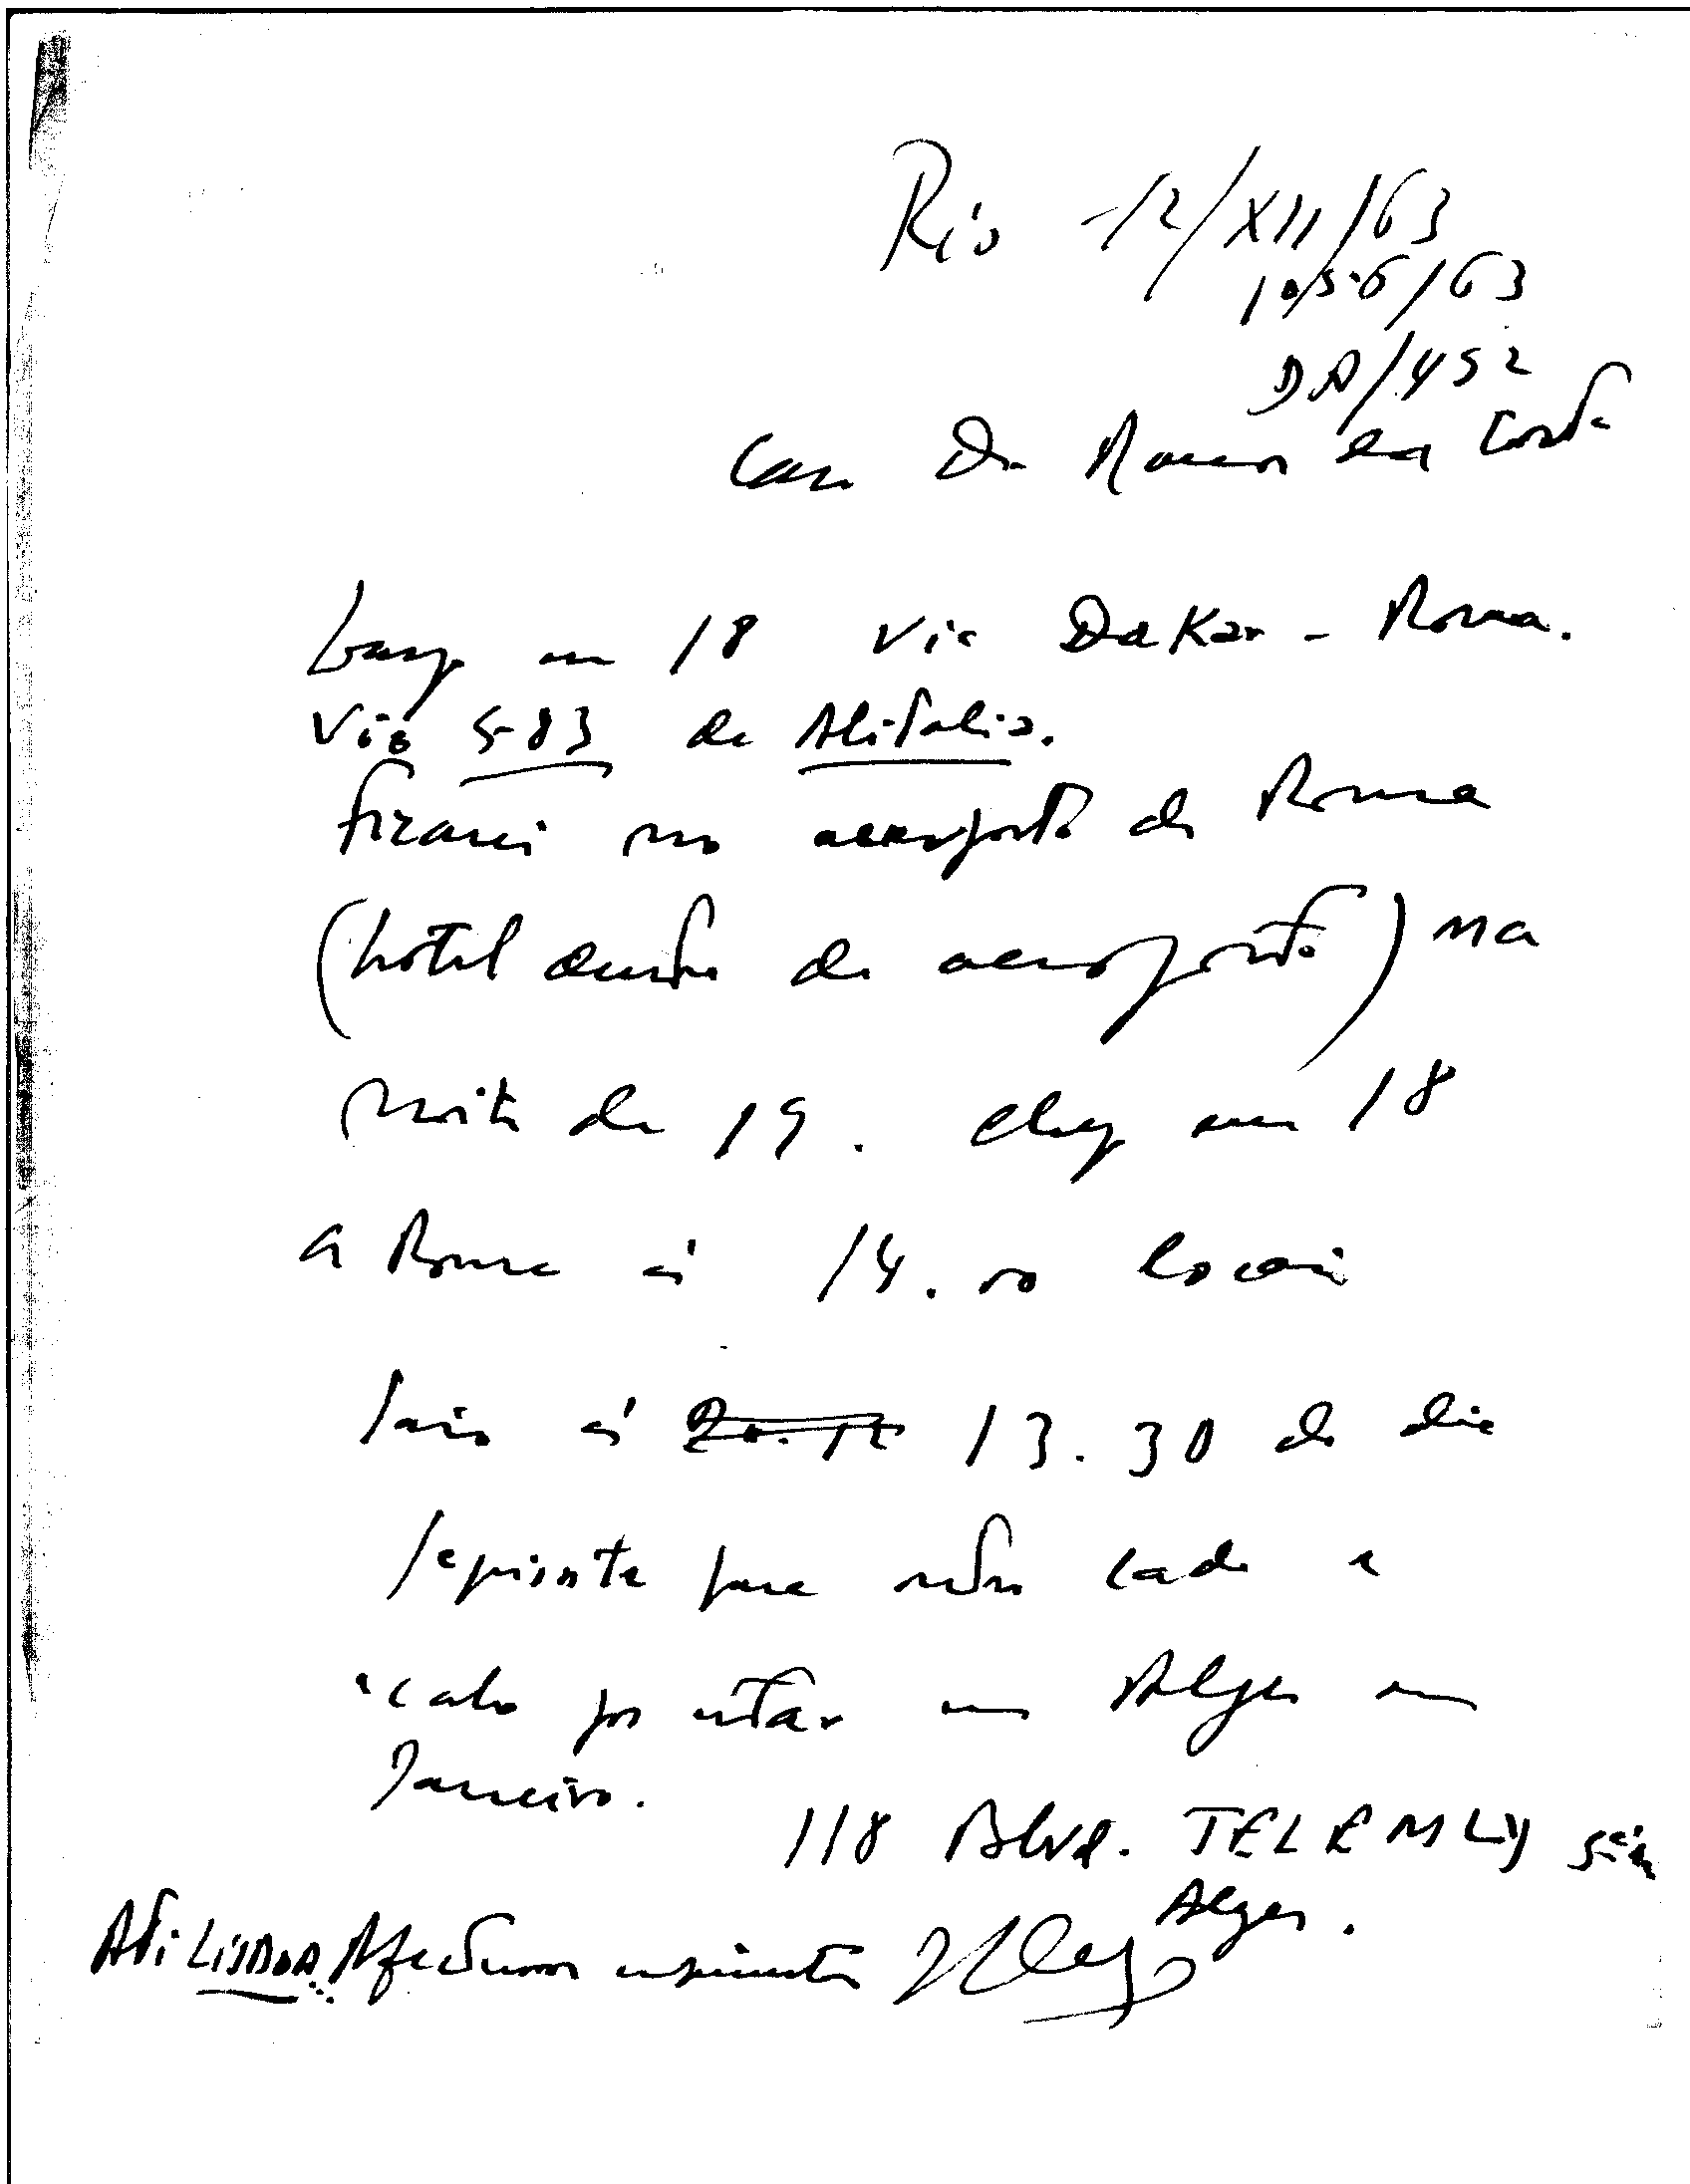 Rio 12/XII/63
1056/63
DA/452
Caro Dr. Ramos da Costa
em 18 via Dakar - Roma.
Vôo 583 da Alitalia.
ficarei no aeroporto de Roma
(hotel dentro do aeroporto) na
noite de 19. chego em 18
a Roma às 14.00 locais
saio às 13.30 do dia
seguinte para
acabo por estar em Alger em
Janeiro.
118 Blvd. TELEMLY
Alger.
Até LISBOA. Afectuosos cumprimentos